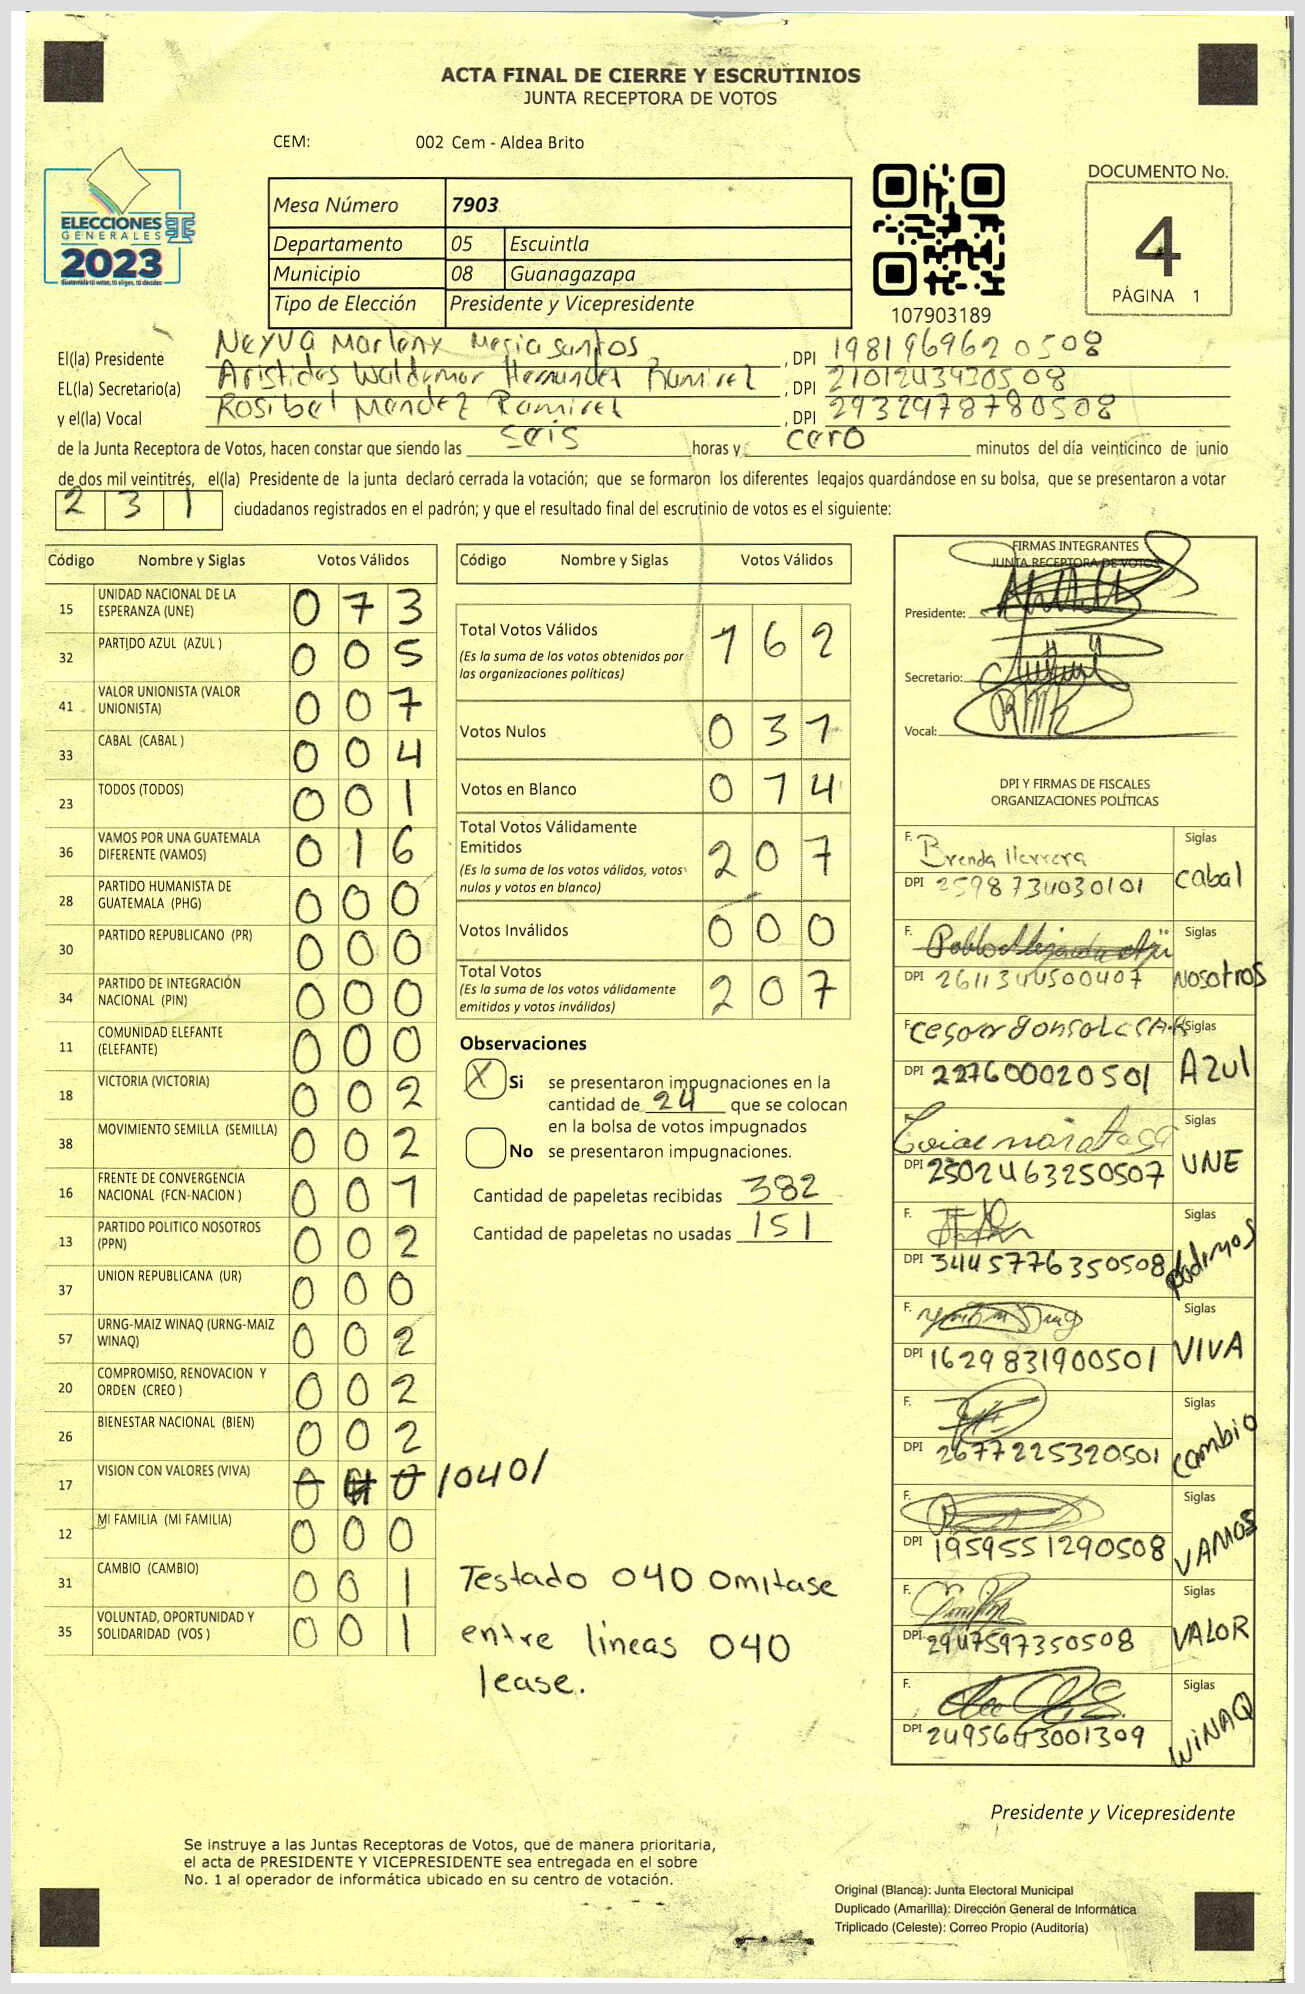 ACTA FINAL DE CIERRE Y ESCRUTINIOS
JUNTA RECEPTORA DE VOTOS
CEM: 002 Cem - Aldea Brito
ELECCIONES
GENERALES
2023
Guatemala tú votas, tú eliges, tú decides
Mesa Número 7903
Departamento 05 Escuintla
Municipio 08 Guanagazapa
Tipo de Elección Presidente y Vicepresidente
107903189
DOCUMENTO No.
4
PÁGINA 1
El(la) Presidente Neyva Marleny Mejia Santos, DPI 1981969620508
EL(la) Secretario(a) Aristides Waldemar Hernandez Ramirez, DPI 2101243930508
y el(la) Vocal Rosibel Mendez Ramirez, DPI 2932978780508
de la Junta Receptora de Votos, hacen constar que siendo las seis horas y cero minutos del día veinticinco de junio
de dos mil veintitrés, el(la) Presidente de la junta declaró cerrada la votación; que se formaron los diferentes legajos guardándose en su bolsa, que se presentaron a votar
231 ciudadanos registrados en el padrón; y que el resultado final del escrutinio de votos es el siguiente:
Código Nombre y Siglas Votos Válidos
15 UNIDAD NACIONAL DE LA ESPERANZA (UNE) 073
32 PARTIDO AZUL (AZUL ) 005
41 VALOR UNIONISTA (VALOR UNIONISTA) 007
33 CABAL (CABAL ) 004
23 TODOS (TODOS) 001
36 VAMOS POR UNA GUATEMALA DIFERENTE (VAMOS) 016
28 PARTIDO HUMANISTA DE GUATEMALA (PHG) 000
30 PARTIDO REPUBLICANO (PR) 000
34 PARTIDO DE INTEGRACIÓN NACIONAL (PIN) 000
11 COMUNIDAD ELEFANTE (ELEFANTE) 000
18 VICTORIA (VICTORIA) 002
38 MOVIMIENTO SEMILLA (SEMILLA) 002
16 FRENTE DE CONVERGENCIA NACIONAL (FCN-NACION ) 001
13 PARTIDO POLITICO NOSOTROS (PPN) 002
37 UNION REPUBLICANA (UR) 000
57 URNG-MAIZ WINAQ (URNG-MAIZ WINAQ) 002
20 COMPROMISO, RENOVACION Y ORDEN (CREO ) 002
26 BIENESTAR NACIONAL (BIEN) 002
17 VISION CON VALORES (VIVA) /040/
12 MI FAMILIA (MI FAMILIA) 000
31 CAMBIO (CAMBIO) 001
35 VOLUNTAD, OPORTUNIDAD Y SOLIDARIDAD (VOS ) 001
Código Nombre y Siglas Votos Válidos
Total Votos Válidos 162
(Es la suma de los votos obtenidos por
las organizaciones políticas)
Votos Nulos 031
Votos en Blanco 014
Total Votos Válidamente
Emitidos 207
(Es la suma de los votos válidos, votos
nulos y votos en blanco)
Votos Inválidos 000
Total Votos 207
(Es la suma de los votos válidamente
emitidos y votos inválidos)
Observaciones
X Si se presentaron impugnaciones en la
cantidad de 24 que se colocan
en la bolsa de votos impugnados
No se presentaron impugnaciones.
Cantidad de papeletas recibidas 382
Cantidad de papeletas no usadas 151
Testado 040 Omitase
entre lineas 040
lease.
FIRMAS INTEGRANTES
JUNTA RECEPTORA DE VOTOS
Presidente:
Secretario:
Vocal:
DPI Y FIRMAS DE FISCALES
ORGANIZACIONES POLÍTICAS
F. Brenda Herrera Siglas
DPI 2598734030101 Cabal
F. Siglas
DPI 2611344500407 NOSOTROS
F. Siglas
DPI 227600020501 Azul
F. Siglas
DPI 2302463250507 UNE
F. Siglas
DPI 3445776350508 Podemos
F. Siglas
DPI 1629831900501 VIVA
F. Siglas
DPI 2677225320501 Cambio
F. Siglas
DPI 1959551290508 VAMOS
F. Siglas
DPI 2947597350508 VALOR
F. Siglas
DPI 2495643001309 WINAQ
Presidente y Vicepresidente
Se instruye a las Juntas Receptoras de Votos, que de manera prioritaria,
el acta de PRESIDENTE Y VICEPRESIDENTE sea entregada en el sobre
No. 1 al operador de informática ubicado en su centro de votación.
Original (Blanca): Junta Electoral Municipal
Duplicado (Amarilla): Dirección General de Informática
Triplicado (Celeste): Correo Propio (Auditoría)